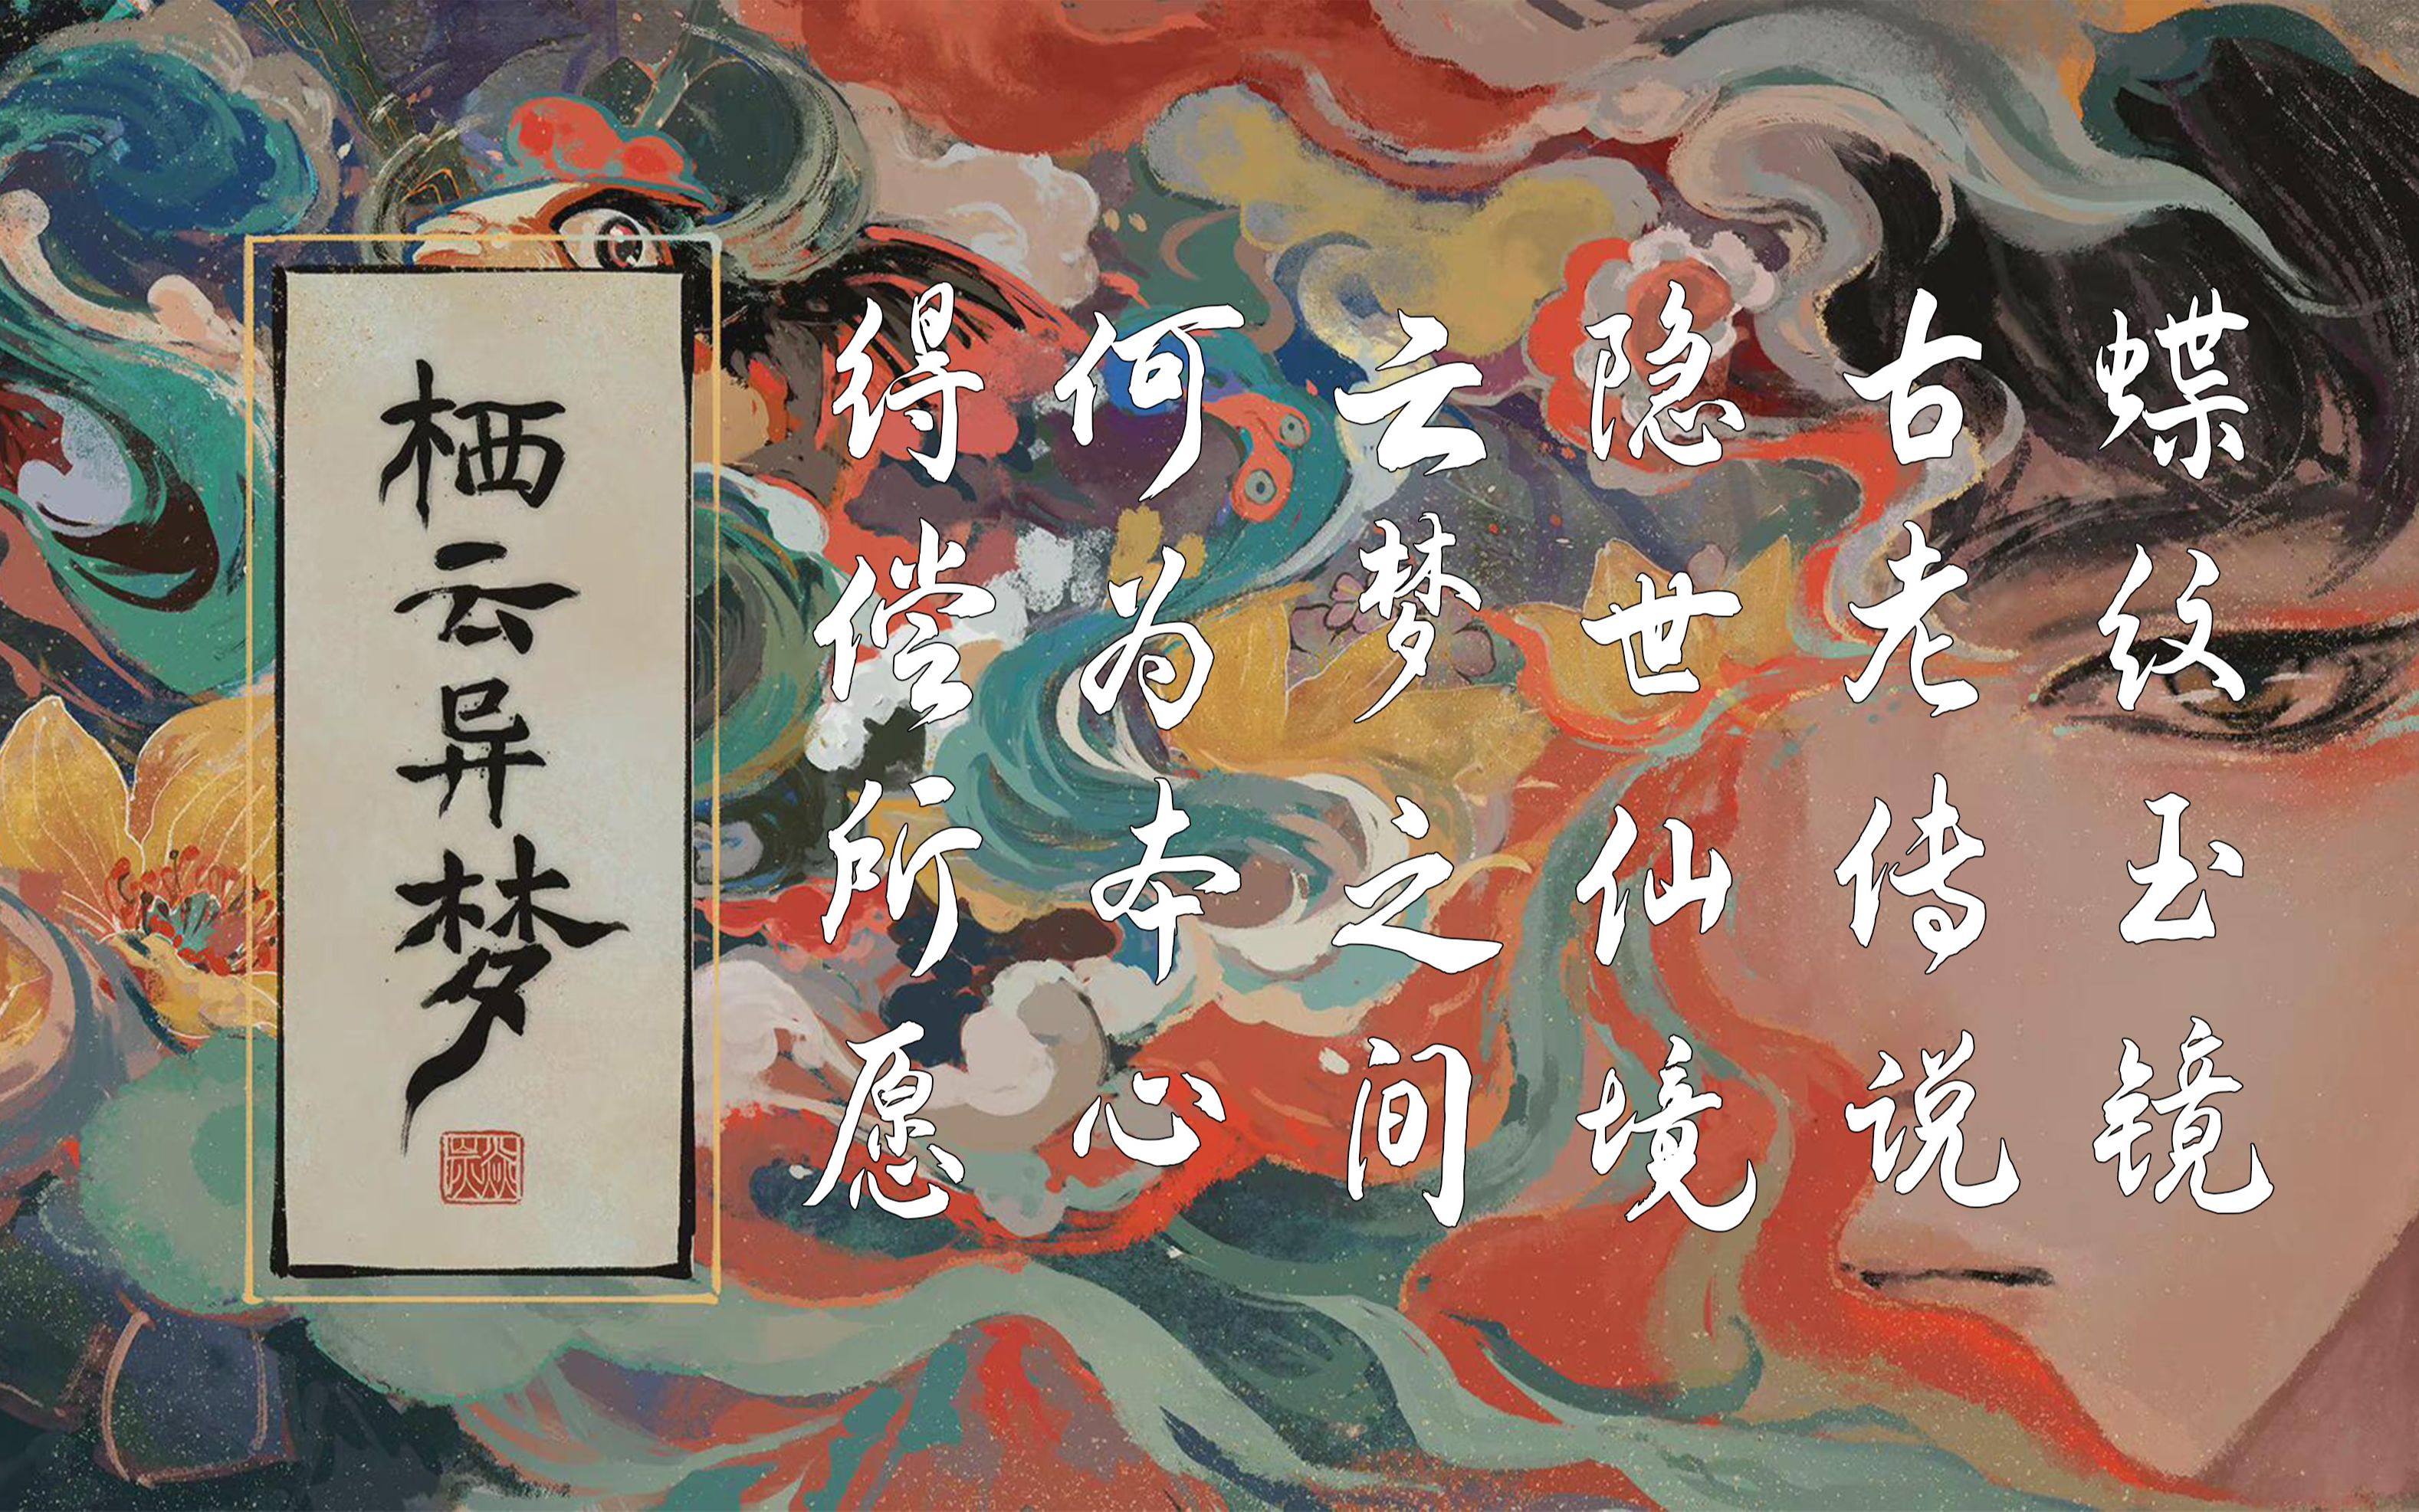 蝶纹玉镜
古老传说
隐世仙境
云梦之间
何为本心
得偿所愿
栖云异梦